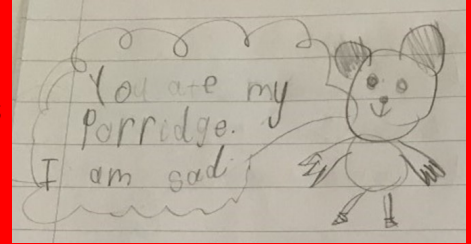 You ate my
Porridge.
I am sad.